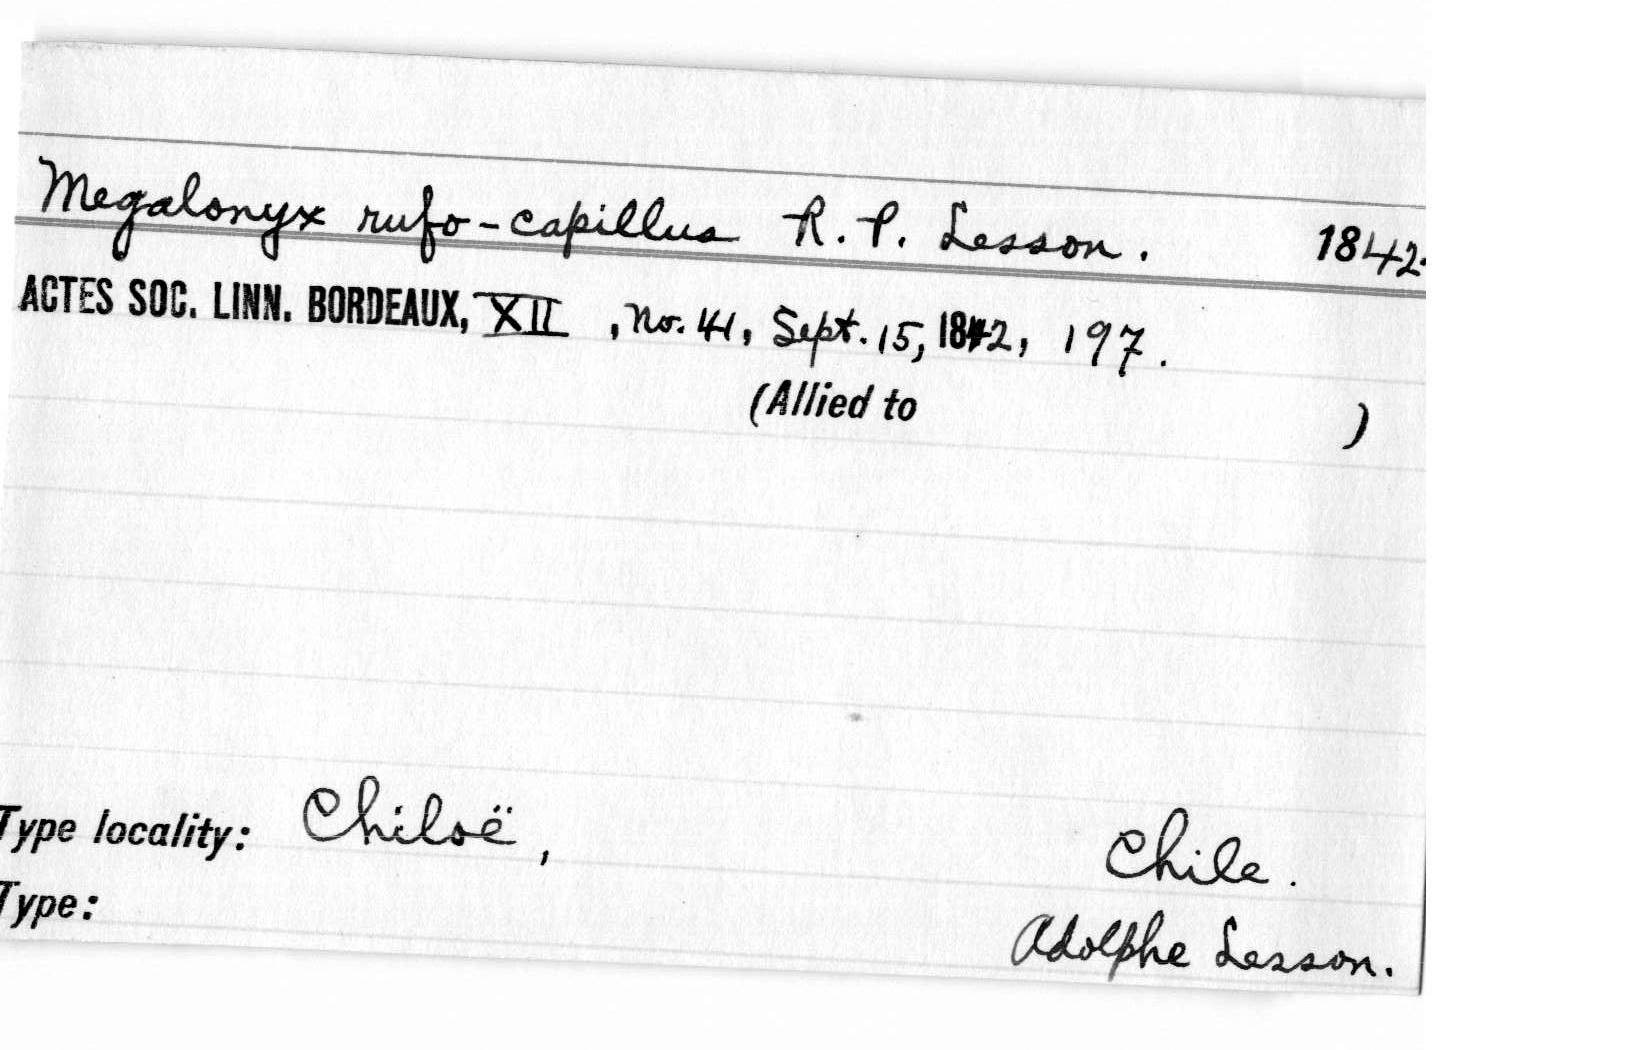 Megalonyx rufo-capillus R. P. Lesson. 1842.
ACTES SOC. LINN. BORDEAUX, XII, No. 41, Sept. 15, 1842, 197.
(Allied to )
Type locality: Chiloë, Chile.
Type: Adolphe Lesson.